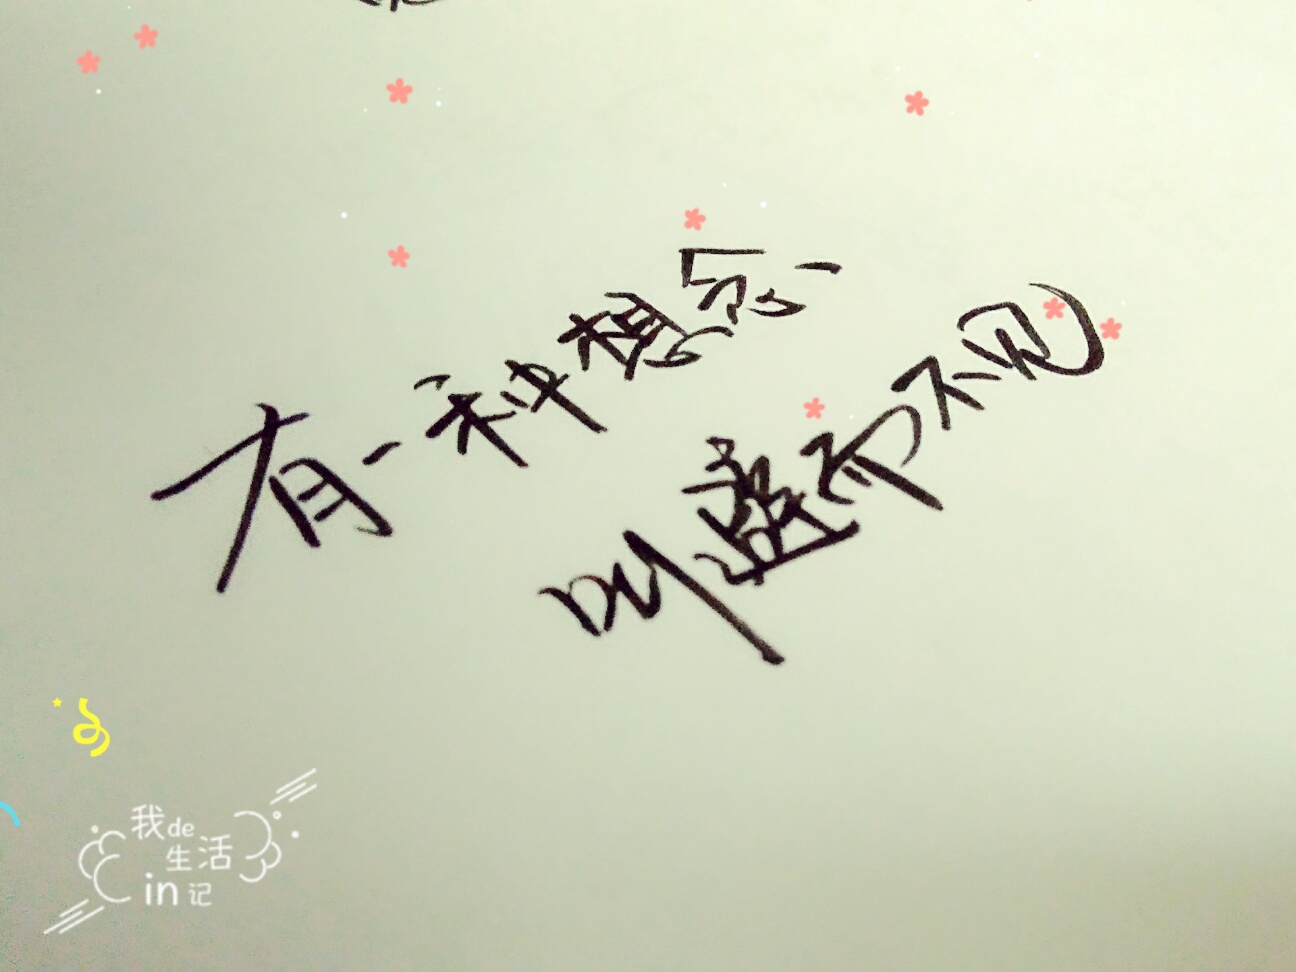 有一种想念
叫避而不见
我de
生活
in记